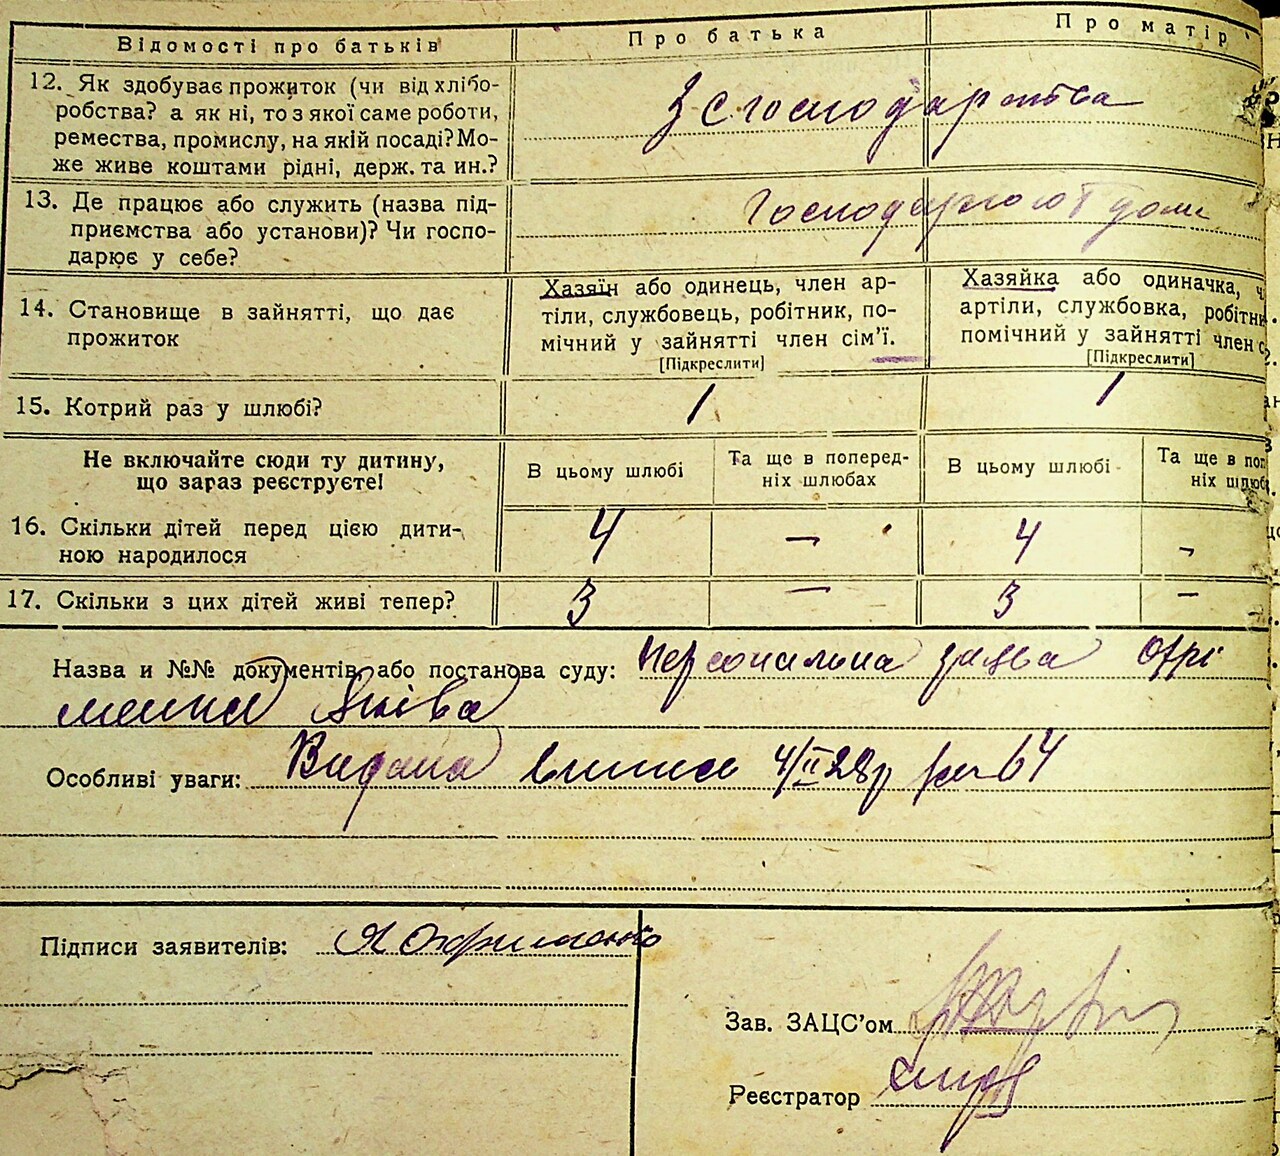 Відомості про батьків
Про батька
Про матір
12. Як здобуває прожиток (чи від хлібо-
робства? а як ні, то з якої саме роботи,
ремества, промислу, на якій посаді? Мо-
же живе коштами рідні, держ. та ин.?
З господарства
13. Де працює або служить (назва під-
приємства або установи)? Чи госпо-
дарює у себе?
Господарюют дома
14. Становище в зайнятті, що дає
прожиток
Хазяїн або одинець, член ар-
тіли, службовець, робітник, по-
мічний у зайнятті член сім'ї.
[Підкреслити]
Хазяйка або одиначка, ч
артіли, службовка, робітн
помічний у зайнятті член с
[Підкреслити]
15. Котрий раз у шлюбі?
1
1
Не включайте сюди ту дитину,
що зараз реєструєте!
В цьому шлюбі
Та ще в поперед-
ніх шлюбах
В цьому шлюбі
Та ще в поп
ніх шлюб
16. Скільки дітей перед цією дити-
ною народилося
4
—
4
—
17. Скільки з цих дітей живі тепер?
3
—
3
—
Назва и №№ документів або постанова суду: Персональна заява Охрі
менка Яківа
Особливі уваги: Видана 4/II 28р 64
Підписи заявителів: Я Охрименко
Зав. ЗАЦС'ом
Реєстратор